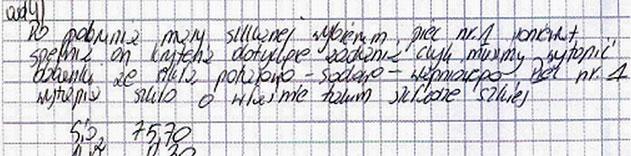 zad 4)
Po pobraniu masy szklanej wybieram piec nr. 1 ponieważ
spełnia on kryteria dotyczące zadania czyli musimy wytopić
ze szkła potasowo - sodowo - wapniowego Piec nr. 1
wytapia szkło o właśnie takim składzie
SiO2 75,70